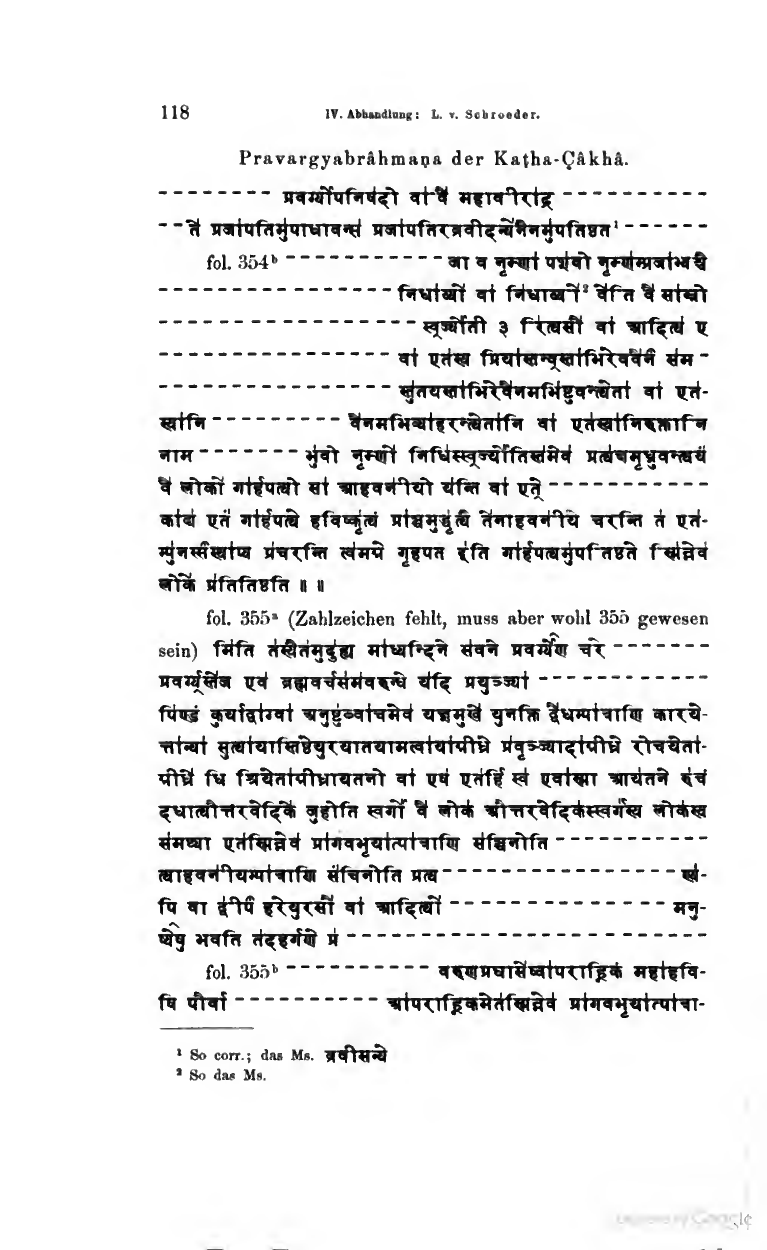 118 IV. Abhandlung: L. v. Schroeder.
Pravargyabrâhmaṇa der Kaṭha-Çâkhâ.
-------- प्रवर्ग्योपनिषदो वा वै महावीराद् ----------
--ते प्रजापतिमुपाधावन्स प्रजापतिरब्रवीद्न्येनैनमुपतिष्ठत¹ ------
fol. 354ᵇ ----------- जा व नृम्णा पशवो नृम्णम्प्रजाभ्य
----------------- निधाय्यो वा निधाय्यो² वेति वै साम्नो
------------------- स्वर्ज्योती ३ रित्यसौ वा आदित्य ए
----------------- वा एतस्य प्रियास्तन्वस्ताभिरेवैनं सम -
----------------- स्तुतयस्ताभिरेवैनमभिष्टुवन्त्येता वा एत-
स्यानि --------- वैनमभिव्याहरन्त्येतानि वा एतस्यानिरुक्तानि
नाम ------- भुवो नृम्णो निधिस्स्वर्ज्योतिस्तमेव प्रत्यक्षमृध्नुवन्त्ययं
वै लोको गार्हपत्यो सा आहवनीयो यन्ति वा एते ------------
कादा एतं गार्हपत्ये हविष्कृत्यं प्राञ्चमुद्धृत्य तेनाहवनीये चरन्ति त एत-
म्पुनस्संस्थाप्य प्रचरन्ति त्वमग्ने गृहपत इति गार्हपत्यमुपतिष्ठते स्मिन्नेव
लोके प्रतितिष्ठति ॥ ॥
fol. 355ᵃ (Zahlzeichen fehlt, muss aber wohl 355 gewesen
sein) मिति तस्यैतमुदुह्य माध्यन्दिने सवने प्रवर्ग्येण चरे -------
प्रवर्ग्यस्तेज एव ब्रह्मवर्चसमवरुन्धे यदि प्रयुञ्ज्या ------------
पिण्डं कुर्याद्वाग्वा अनुष्टुब्वाचमेव यज्ञमुखे युनक्ति द्वैधम्पात्राणि कारये-
त्तान्या सुत्यायास्तिष्ठेयुरयातयामत्वायाग्नीध्रे प्रवृञ्ज्यादाग्नीध्रे रोचयेता-
ग्नीध्रे धि श्रियेताग्नीध्रायतनो वा एष एतर्हि स्व एवास्मा आयतने रुचं
दधात्यौत्तरवेदिके जुहोति स्वर्गो वै लोक औत्तरवेदिकस्स्वर्गस्य लोकस्य
समष्ट्या एतस्मिन्नेव प्रागवभृथात्पात्राणि संचिनोति -----------
त्याहवनीयम्पात्राणि संचिनोति प्रत्य ----------------
पि वा द्वीपं हरेयुरसौ वा आदित्यो ---------------- मनु-
ष्येषु भवति तदहर्गणे प्र ------------------------
fol. 355ᵇ ---------- वरुणप्रघासेष्वापराह्णिकं महाहवि-
षि पौर्वा ---------- आपराह्णिकमेतस्मिन्नेव प्रागवभृथात्पात्रा-
¹ So corr.; das Ms. ब्रवीसन्ये
² So das Ms.
Google